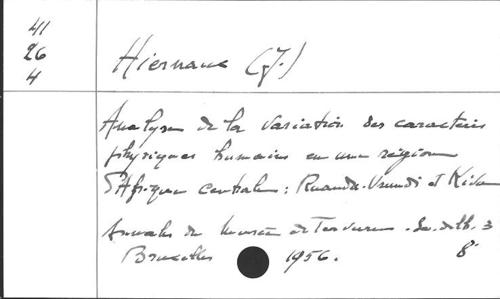 41
26
4
Hiernaux (J.)
Analyse de la variation des caractères
physiques humains en une région
d'Afrique centrale : Ruanda-Urundi et Kivu
Annales du Musée de Tervuren.
3
Bruxelles 1956. 8°